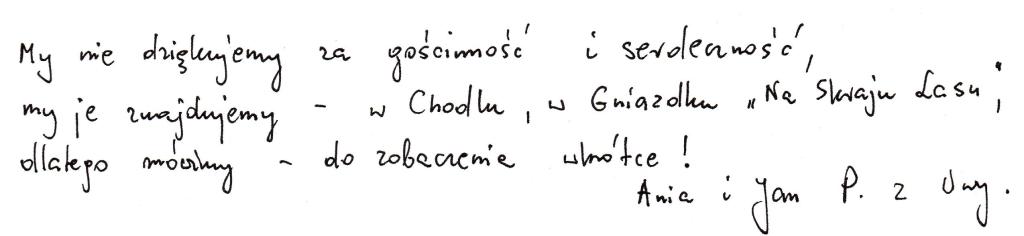 My nie dziękujemy za gościnność i serdeczność,
my je znajdujemy - w Chodlu, w Gniazdku „Na Skraju Lasu”,
dlatego mówimy - do zobaczenia wkrótce!
Ania i Jan P. z